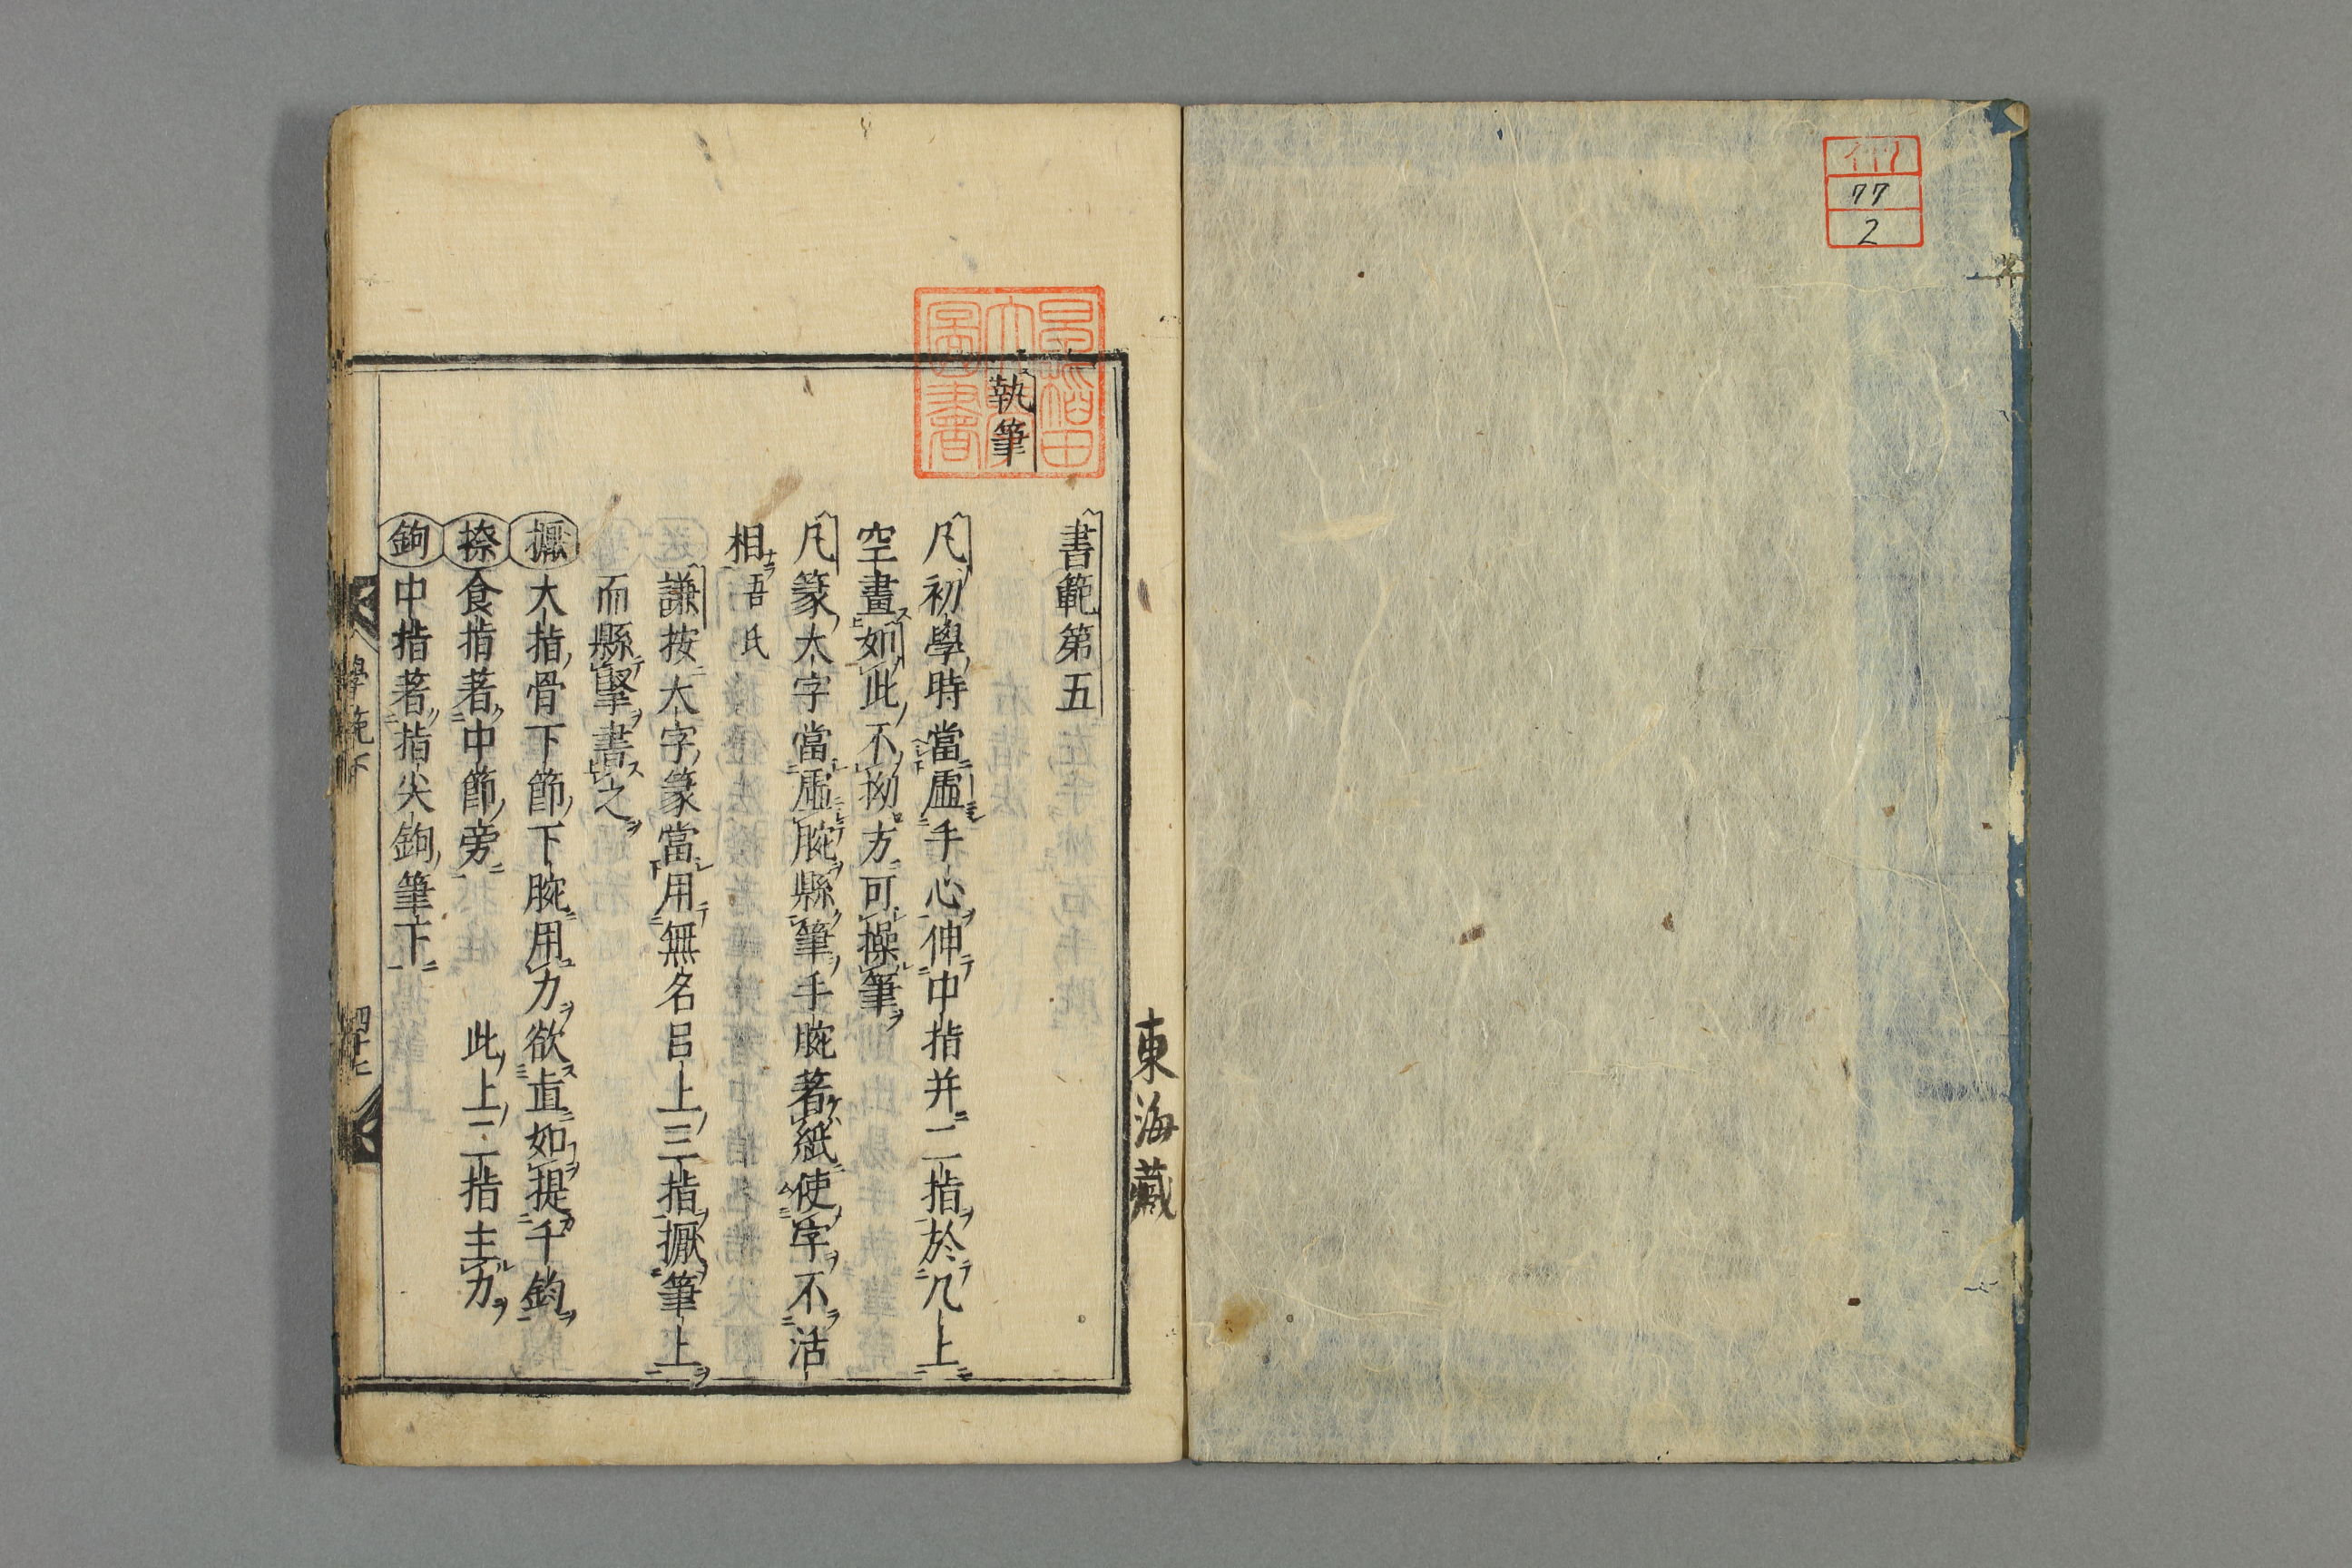 77
2
東海藏
書範第五
執筆
凡初學時當虛手心伸中指并二指於几上
空畫如此不拗方可操筆
凡篆大字當虛腕縣筆手腕著紙使字不活
相 吾氏
謙按大字篆當用無名呂上三指撅筆上
而縣掔書之
擫 大指骨下節下腕用力欲直如提千鈞
捺 食指著中節旁 此上二指主力
鉤 中指著指尖鉤筆下
學範下
早稻田大學圖書